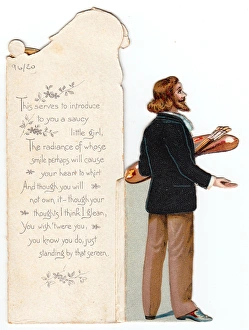 96/20
This serves to introduce
to you a saucy
little girl,
The radiance of whose
smile perhaps will cause
your heart to whirl
And though you will
not own it - though your
thoughts I think I glean,
You wish 'twere you
you know you do, just
standing by that screen.